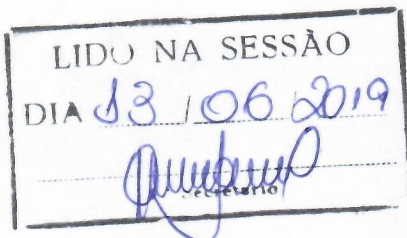 LIDO NA SESSÃO
DIA 13 / 06 / 2019
Secretário